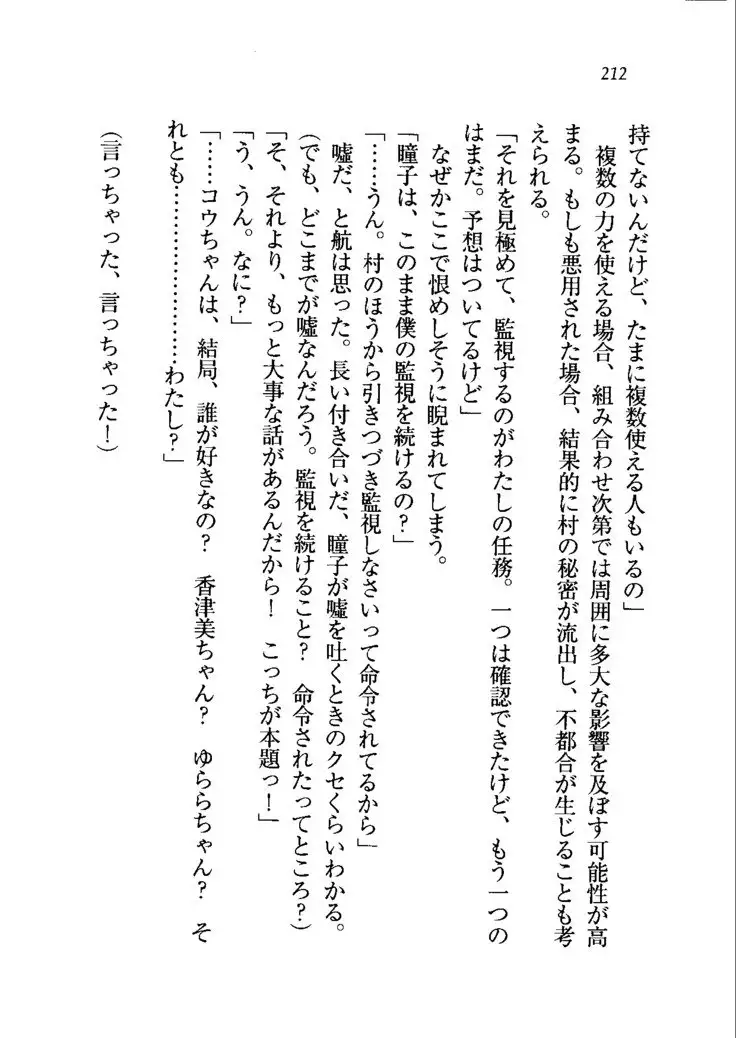 212
持てないんだけど、たまに複数使える人もいるの」
　複数の力を使える場合、組み合わせ次第では周囲に多大な影響を及ぼす可能性が高
まる。もしも悪用された場合、結果的に村の秘密が流出し、不都合が生じることも考
えられる。
「それを見極めて、監視するのがわたしの任務。一つは確認できたけど、もう一つの
はまだ。予想はついてるけど」
　なぜかここで恨めしそうに睨まれてしまう。
「瞳子は、このまま僕の監視を続けるの？」
「……うん。村のほうから引きつづき監視しなさいって命令されてるから」
　嘘だ、と航は思った。長い付き合いだ、瞳子が嘘を吐くときのクセくらいわかる。
（でも、どこまでが嘘なんだろう。監視を続けること？　命令されたってところ？）
「そ、それより、もっと大事な話があるんだから！　こっちが本題っ！」
「う、うん。なに？」
「……コウちゃんは、結局、誰が好きなの？　香津美ちゃん？　ゆららちゃん？　そ
れとも……………………わたし？」
（言っちゃった、言っちゃった！）